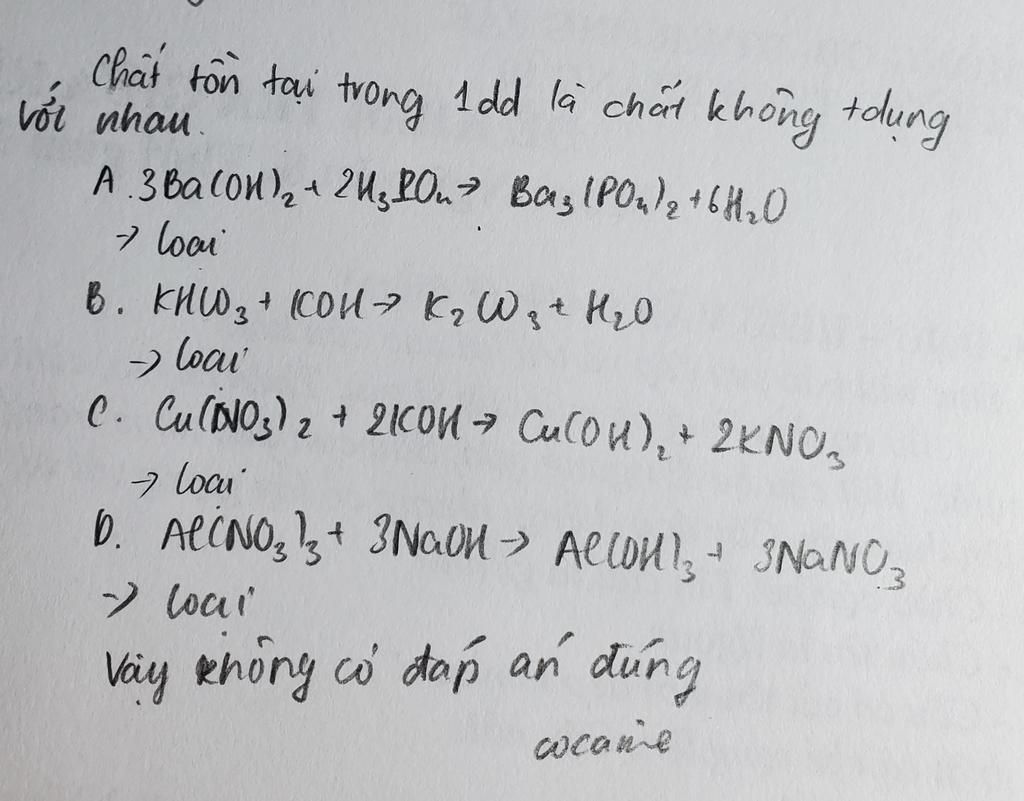 Chất tồn tại trong 1dd là chất không tdụng
với nhau.
A. 3Ba(OH)₂ + 2H₃PO₄ → Ba₃(PO₄)₂ + 6H₂O
→ loại
B. KHCO₃ + KOH → K₂CO₃ + H₂O
→ loại
C. Cu(NO₃)₂ + 2KOH → Cu(OH)₂ + 2KNO₃
→ loại
D. Al(NO₃)₃ + 3NaOH → Al(OH)₃ + 3NaNO₃
→ loại
Vậy không có đáp án đúng
cocaine